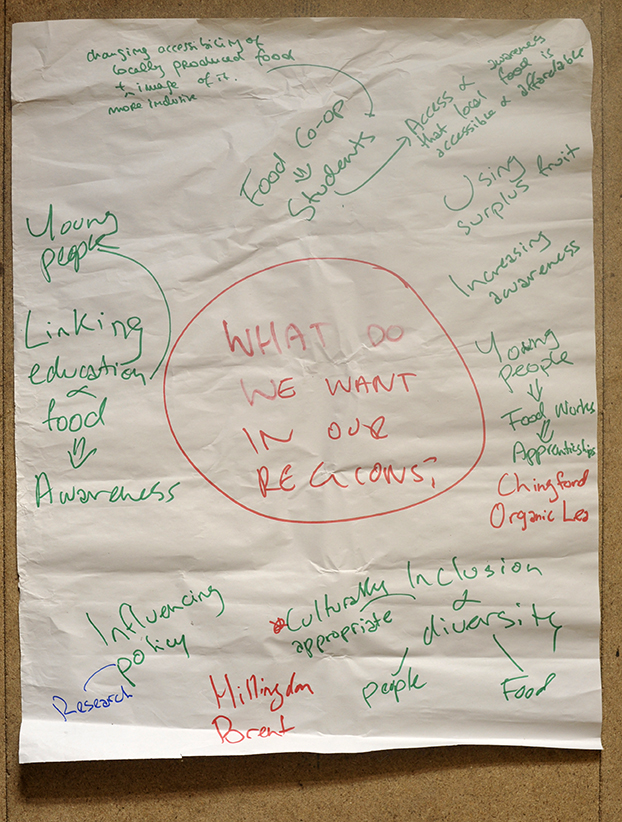 changing accessibility of
locally produced food
+ image of it.
more inclusive
Food Co-op
Students
Access & awareness
that local food is
accessible & affordable
Using
surplus fruit
Increasing
awareness
Young
people
Food Works
Apprenticeships
Chingford
Organic Lea
Young
people
Linking
education
&
food
Awareness
WHAT DO
WE WANT
IN OUR
REGIONS?
Influencing
policy
Research
Culturally
appropriate
Inclusion
&
diversity
people
Food
Hillingdon
Brent